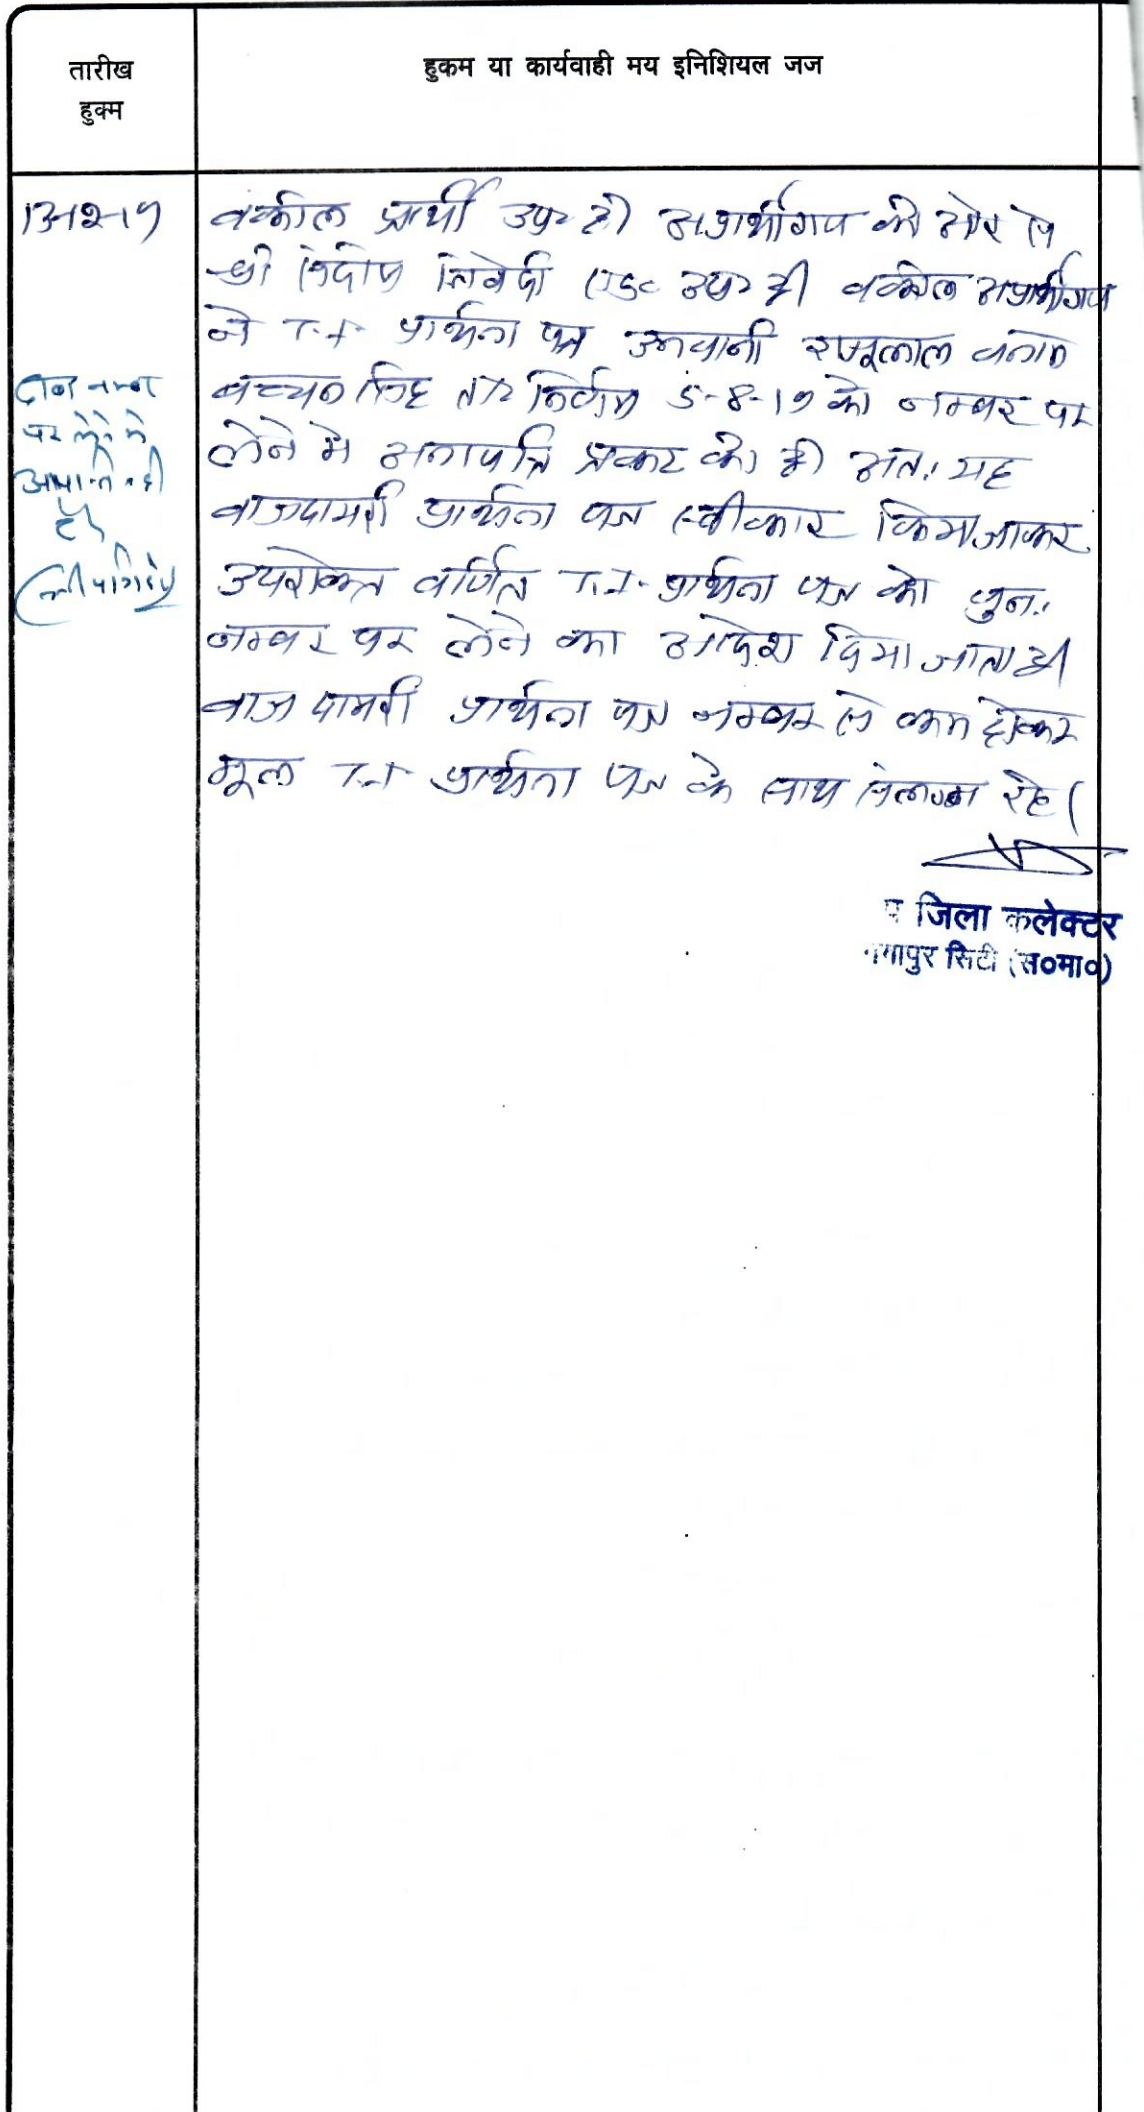 तारीख
हुक्म
हुकम या कार्यवाही मय इनिशियल जज
वकील प्रार्थी उप० है। अप्रार्थीगण की ओर से
श्री त्रिवेदी एड० उप० है। वकील अप्रार्थीगण
ने T.I. प्रार्थना पत्र उनवानी रामूलाल बनाम
बच्चन सिंह निर्णय 5-8-19 को नम्बर पर
लेने मे अनापत्ति प्रकट की है। अतः यह
बाजदायरी प्रार्थना पत्र स्वीकार किया जाकर
उपरोक्त वर्णित T.I. प्रार्थना पत्र को पुनः
नम्बर पर लेने का आदेश दिया जाता है।
बाजदायरी प्रार्थना पत्र नम्बर से कम होकर
मूल T.I. प्रार्थना पत्र के साथ संलग्न रहे।
पर लेने मे
आपत्ति नही
है।
जिला कलेक्टर
सिटी (स०मा०)